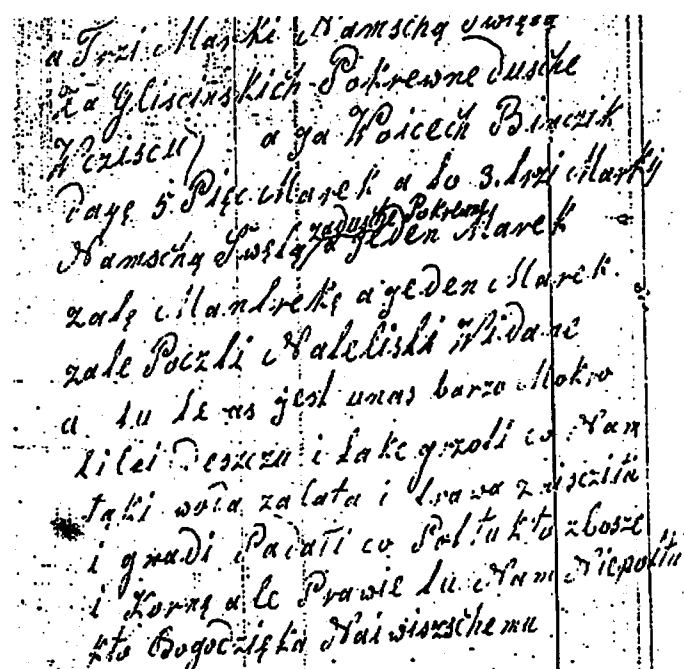 a Trzi Marki Namschą Swięną
Za Gliscinskich Pokrewne Dusche
W Cziscu) a ga Woicech Binczik
Dagę 5. Pięc Marek a to 3. trzi Marky
Namschą Swętą zadusche Pokrewny a geden Marek
zatę Mantrekę a geden Marek.
zate Poczti Naletiski Widane
a tu teras jest unas barzo Mokro
tilei Deszczu i take grzoti co Nam
łąki woda zalata i trawa znisczila
i gradi Padali co Poltukło zbosze
i Kornę ale Prawie tu Nam Niepoltu
kło Bogodzięka Naiwiszschemu